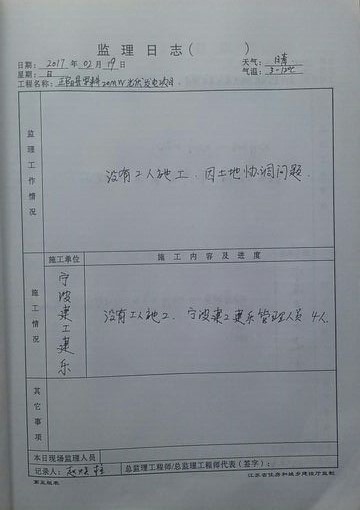 监理日志( )
日期: 2017 年 02 月 19 日 天气: 晴
星期: 日 气温: 3-12℃
工程名称: 20MW光伏发电项目
监理工作情况
没有工人施工、因土地协调问题.
施工单位 施工内容及进度
施工情况
宁波建工建乐
没有工人施工、宁波建工建乐管理人员4人
其它事项
本日现场监理人员
记录人: 总监理工程师/总监理工程师代表(签字):
江苏省住房和城乡建设厅监制
第五版表